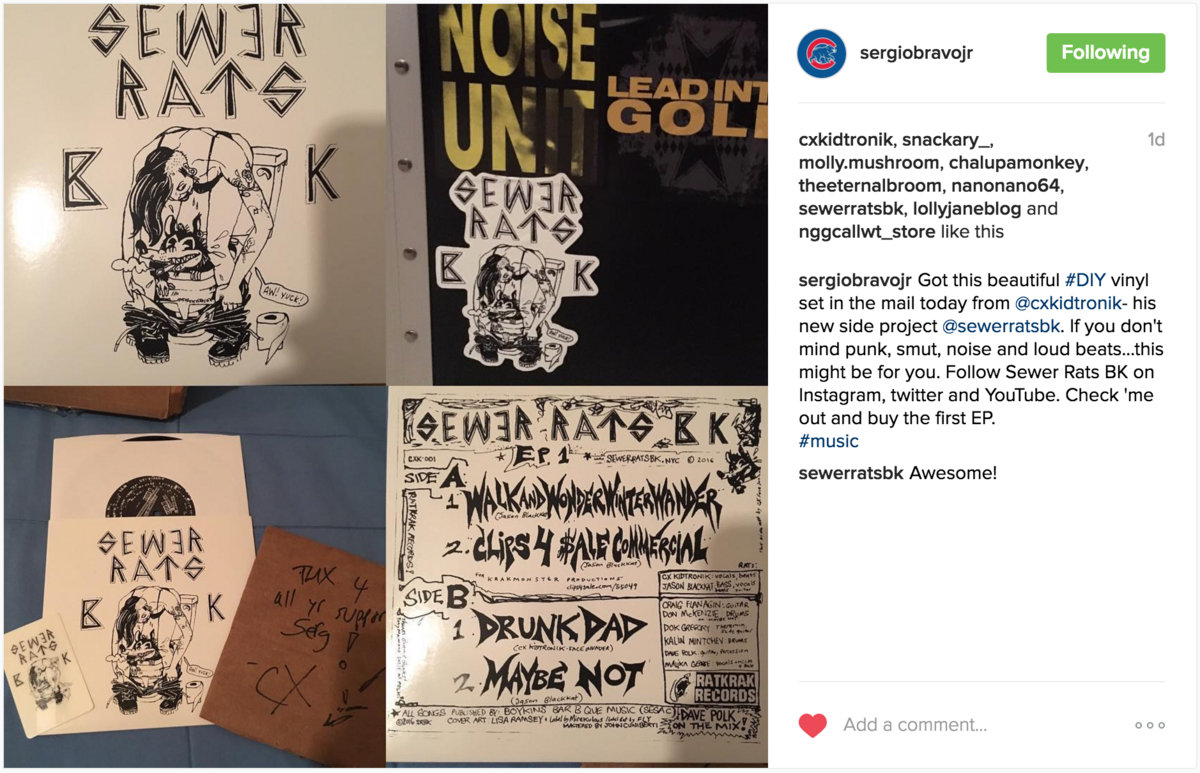 SEWER
RATS
B K
AW! YUCK!
NOISE
UNIT
LEAD INT
GOL
SEWER
RATS
B K
SEWER
RATS
B K
SEWER
RATS
B K
TUX 4
all yr
support
Serg !
- CX
SEWER RATS BK
CXK-001
EP 1
SEWERRATSBK.NYC © 2016
SIDE A
RATKRAK RECORDS!
1 WALK AND WONDER WINTER WANDER
(Jason Blackkat)
2. CLIPS 4 $ALE COMMERCIAL
(Jason Blackkat)
FOR KRAKMONSTER PRODUCTIONS
clips4sale.com/55049
RATS:
CX KIDTRONIK: vocals, beats
JASON BLACKKAT BASS, vocals
SIDE B
1 DRUNK DAD
(CX KIDTRONIK - FACE INVADER)
2 MAYBE NOT
(Jason Blackkat)
CRAIG FLANAGIN: GUITAR
DON McKENZIE: DRUMS
DOK GREGORY: Theremin
KALIN MINTCHEV: DRUMS
DAVE POLK: guitar, percussion
RATKRAK
RECORDS
ALL SONGS PUBLISHED BY: BOYKINS BAR B QUE MUSIC (SESAC)
COVER ART LISA RAMSEY
MASTERED BY JOHN CUNIBERTI
DAVE POLK
ON THE MIX!
sergiobravojr
Following
cxkidtronik, snackary_,
molly.mushroom, chalupamonkey,
theeternalbroom, nanonano64,
sewerratsbk, lollyjaneblog and
nggcallwt_store like this
1d
sergiobravojr Got this beautiful #DIY vinyl
set in the mail today from @cxkidtronik- his
new side project @sewerratsbk. If you don't
mind punk, smut, noise and loud beats...this
might be for you. Follow Sewer Rats BK on
Instagram, twitter and YouTube. Check 'me
out and buy the first EP.
#music
sewerratsbk Awesome!
Add a comment...